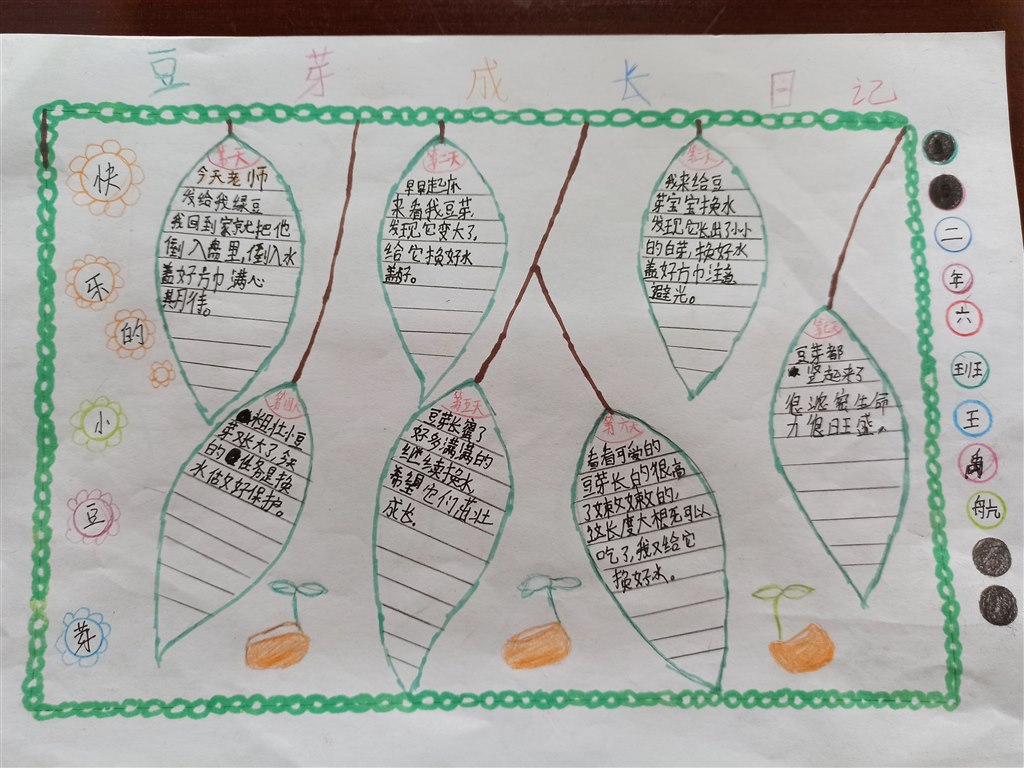 豆芽成长日记
快乐的小豆芽
第一天
今天老师
发给我绿豆
我回到家就把他
倒入盘里,倒入水
盖好方巾满心
期待。
第二天
早早起床
来看我豆芽
发现它变大了,
给它换好水
盖好。
第三天
我来给豆
芽宝宝换水
发现它长出了小小
的白芽,换好水
盖好方巾注意
避光。
第四天
粗壮小豆
芽又长大了,今天
的任务是换
水做好保护。
第五天
豆芽长
好多满满的
继续换水
希望它们茁壮
成长。
第六天
看着可爱的
豆芽长白的很高
了嫩嫩的,
这长度大概可以
吃了,我又给它
换好水。
第七天
豆芽都
竖起来了
很浓密生命
力很旺盛。
二年六班王